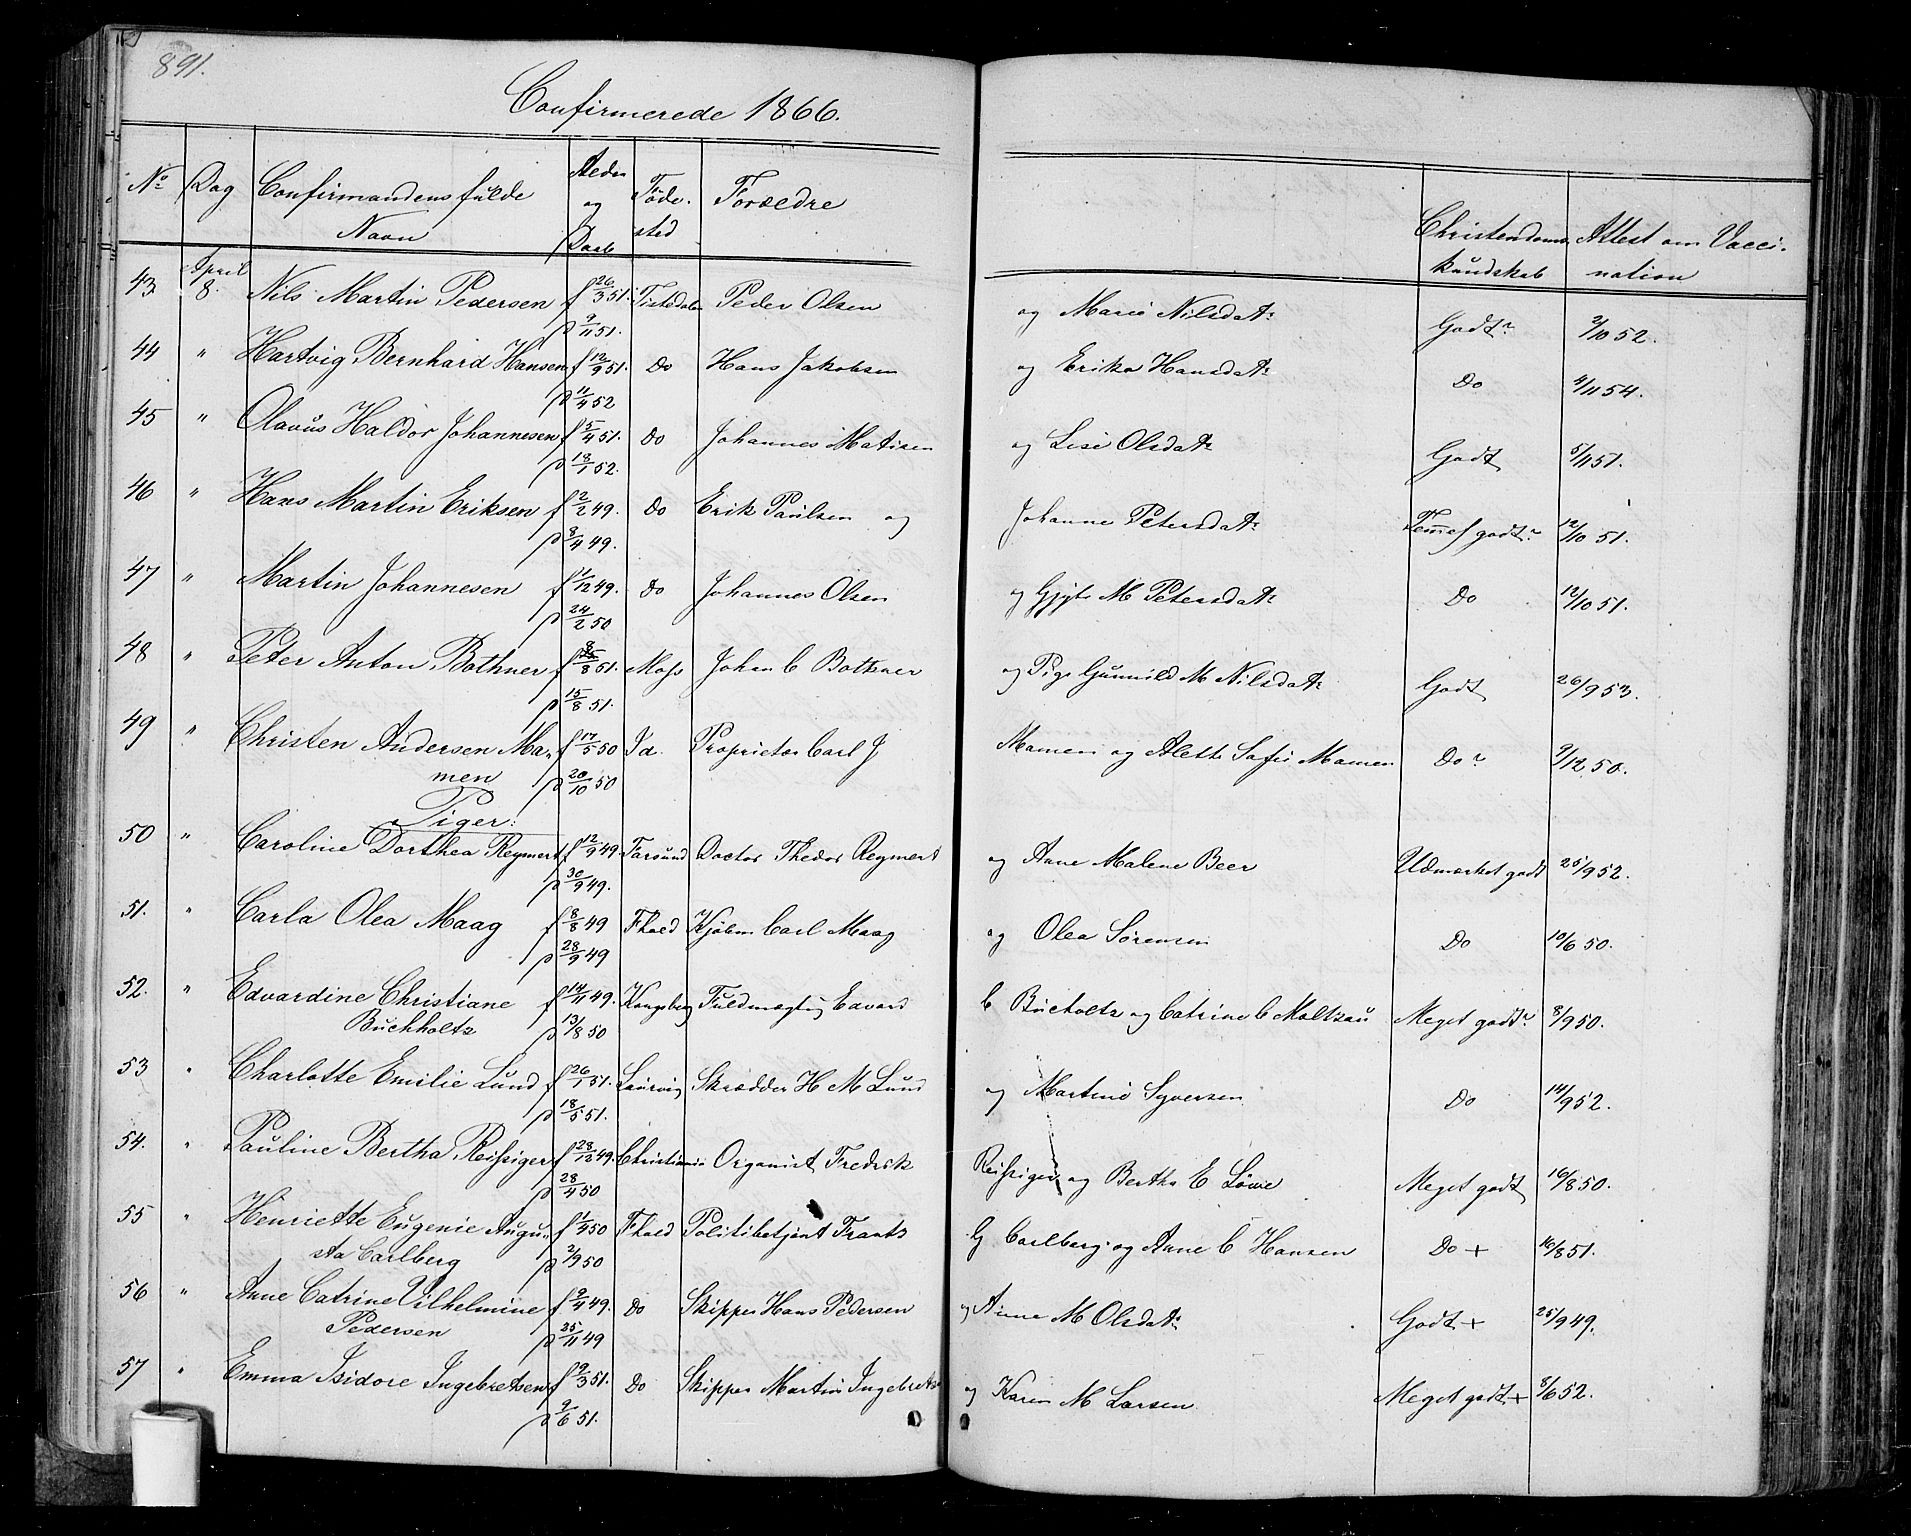 891.
Confirmerede 1866.
No Dag Confirmandens fulde Navn Alder og Daab Fødested Forældre Christendomskundskab Attest om Vaccination
43 April 8. Nils Martin Pedersen f 26/3 51. Tistedalen Peder Olsen og Marie Nilsdatr Godt 2/10 52.
p 9/11 51.
44 " Hartvig Bernhard Hansen f 12/9 51. Do Hans Jakobsen og Erika Hansdatr Do 4/11 54.
p 11/4 52
45 " Olavus Haldor Johannesen f 5/4 51. Do Johannes Matisen og Lise Olsdatr Godt 5/11 51.
p 18/1 52.
46 " Hans Martin Eriksen f 2/2 49. Do Erik Paulsen og Johanne Petersdatr Temmel godt 12/10 51.
p 8/4 49.
47 " Martin Johannesen f 1/12 49. Do Johannes Olsen og M Petersdatr Do 12/10 51.
p 24/2 50
48 " Peter Anton Bothner f 8/8 51. Moss Johan C Bothner og Pige Gunnild M Nilsdatr Godt 26/9 53.
p 15/8 51.
49 " Christen Andersen Ma- f 17/5 50 Id. Proprietær Carl J Mamen og Alette Sofie Mamen Do 9/12 50.
men p 20/10 50
Piger:
50 " Caroline Dorthea Reymert f 12/9 49. Farsund Doctor Thedor Reymert og Anne Malene Beer Udmærket godt 25/9 52.
p 30/9 49.
51. " Carla Olea Maag f 8/8 49 Fhald Kjøbm Carl Maag og Olea Sørensen Do 10/6 50.
p 28/9 49
52. " Edvardine Christiane f 14/11 49. Kongsberg Fuldmægtig Edvard C Bucholtz og Catrine C Maltzau Meget godt 8/9 50.
Buchholtz p 13/8 50
53 " Charlotte Emilie Lund f 26/1 51. Laurvig Skrædder H M Lund og Martine Syversen Do 14/9 52.
p 18/5 51.
54. " Pauline Bertha Reissiger f 28/12 49. Christiania Organist Fredrik Reissiger og Bertha E Löwe Meget godt 16/8 50.
p 28/4 50
55 " Henriette Eugenie Augu- f 1/4 50 Fhald Politibetjent Frantz G Carlberg og Anne C Hansen Do + 16/8 51.
sta Carlberg p 2/9 50
56 " Anne Catrine Vilhelmine f 9/4 49. Do Skipper Hans Pedersen og Anne M Olsdatr Godt + 25/9 49.
Pedersen p 25/11 49
57 " Emma Isidore Ingebretsen f 9/3 51. Do Skipper Martin Ingebrets og Karen M Larsen Meget godt + 8/6 52.
p 9/6 51.